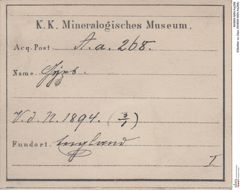 K. K. Mineralogisches Museum.
Acq. Post A. a. 268.
Name. Gyps.
V. d. N. 1894. (3/7)
Fundort. England
I